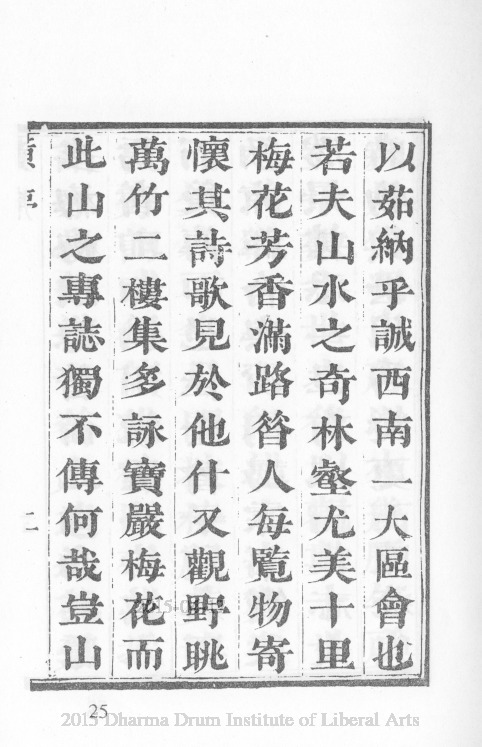 以茹納乎誠西南一大區會也
若夫山水之奇林壑尤美十里
梅花芳香滿路昝人每覽物寄
懷其詩歌見於他什又觀野眺
萬竹二樓集多詠寶嚴梅花而
此山之專誌獨不傳何哉豈山
二
25
2015 Dharma Drum Institute of Liberal Arts